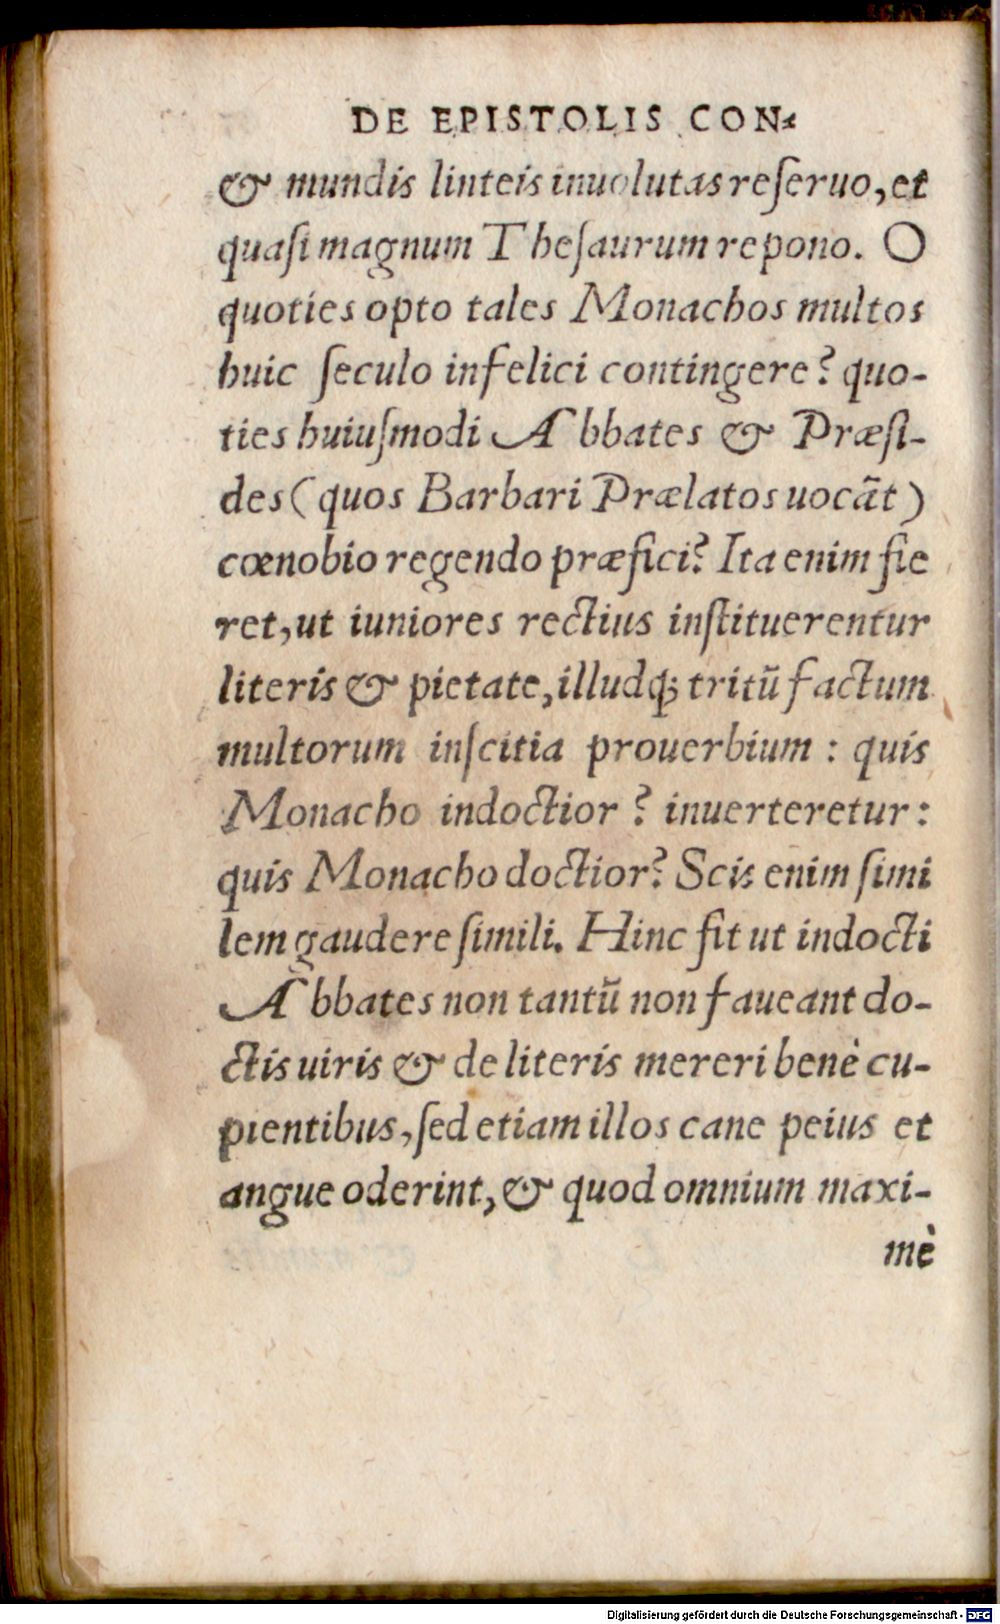 DE EPISTOLIS CON-
& mundis linteis inuolutas reſeruo, et
quaſi magnum Theſaurum repono. O
quoties opto tales Monachos multos
huic ſeculo infelici contingere? quo-
ties huiuſmodi Abbates & Præſi-
des (quos Barbari Prælatos uocãt)
cœnobio regendo præfici? Ita enim fie
ret, ut iuniores rectius inſtituerentur
literis & pietate, illudq; tritũ factum
multorum inſcitia prouerbium : quis
Monacho indoctior ? inuerteretur :
quis Monacho doctior? Scis enim ſimi
lem gaudere ſimili. Hinc fit ut indocti
Abbates non tantũ non faueant do-
ctis uiris & de literis mereri benè cu-
pientibus, ſed etiam illos cane peius et
angue oderint, & quod omnium maxi-
mè
Digitalisierung gefördert durch die Deutsche Forschungsgemeinschaft - DFG